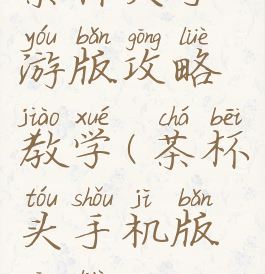 yóu bǎn gōng lüè
游版攻略
jiào xué chá bēi
教学(茶杯
tóu shǒu jī bǎn
头手机版